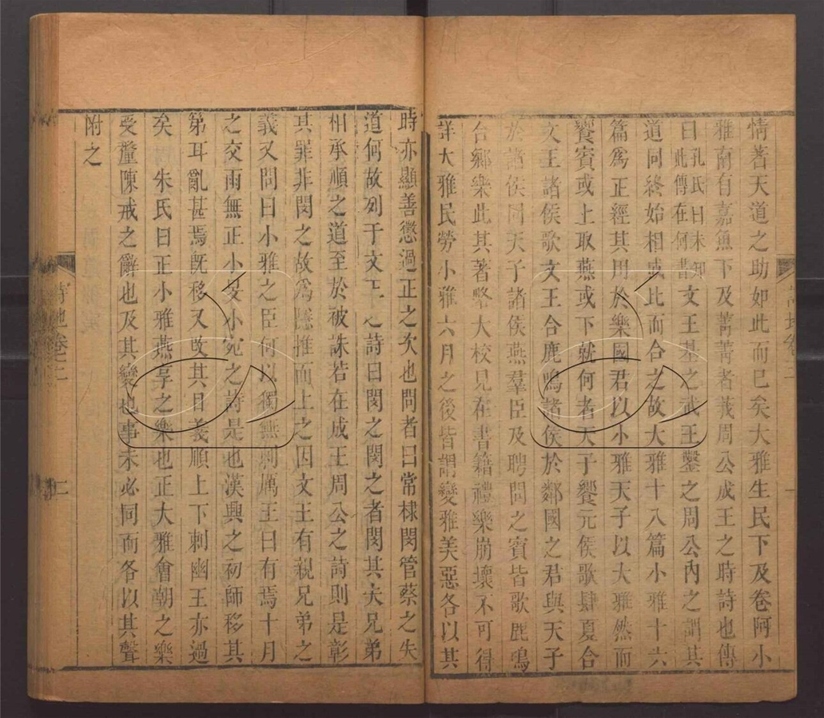 情著天道之助如此而已矣大雅生民下及卷阿小
雅南有嘉魚下及菁菁者莪周公成王之時詩也傳
曰孔氏曰未知此傳在何書文王基之武王鑿之周公內之謂其
道同終始相成比而合之故大雅十八篇小雅十六
篇為正經其用於樂國君以小雅天子以大雅然而
饗賓或上取燕或下就何者天子饗元侯歌肆夏合
文王諸侯歌文王合鹿鳴諸侯於鄰國之君與天子
於諸侯同天子諸侯燕羣臣及聘問之賓皆歌鹿鳴
合鄉樂此其著略大校見在書籍禮樂崩壞不可得
詳大雅民勞小雅六月之後皆謂變雅美惡各以其
時亦顯善懲過正之次也問者曰常棣閔管蔡之失
道何故列于文王之詩曰閔之閔之者閔其失兄弟
相承順之道至於被誅若在成王周公之詩則是彰
其罪非閔之故為隱推而上之因文王有親兄弟之
義又問曰小雅之臣何以獨無刺厲王曰有焉十月
之交雨無正小旻小宛之詩是也漢興之初師移其
第耳亂甚焉既移又改其目義順上下刺幽王亦過
矣 朱氏曰正小雅燕享之樂也正大雅會朝之樂
受釐陳戒之辭也及其變也事未必同而各以其聲
附之
詩地卷三
二